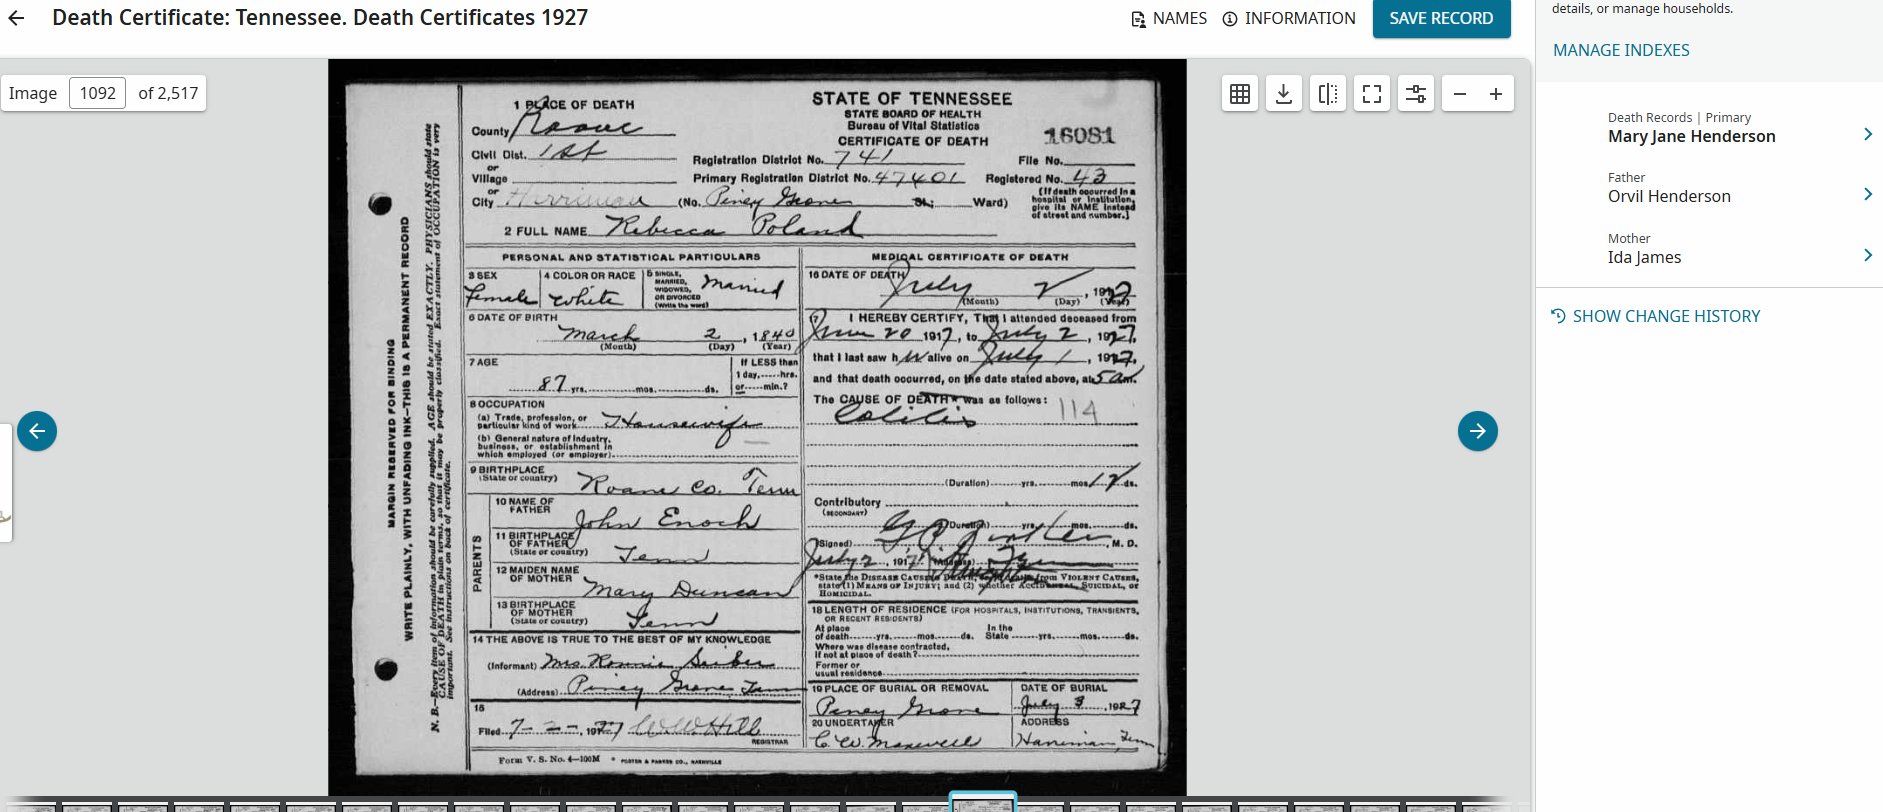 Death Certificate: Tennessee. Death Certificates 1927
NAMES
INFORMATION
SAVE RECORD
details, or manage households.
MANAGE INDEXES
Image 1092 of 2,517
Death Records | Primary
Mary Jane Henderson
Father
Orvil Henderson
Mother
Ida James
SHOW CHANGE HISTORY
MARGIN RESERVED FOR BINDING
WRITE PLAINLY, WITH UNFADING INK—THIS IS A PERMANENT RECORD
N. B.—Every item of information should be carefully supplied. AGE should be stated EXACTLY. PHYSICIANS should state
CAUSE OF DEATH in plain terms, so that it may be properly classified. Exact statement of OCCUPATION is very
important. See instructions on back of certificate.
1 PLACE OF DEATH
County Roane
Civil Dist. 1st
or
Village
or
City Harriman (No. Piney Grove St.; Ward)
STATE OF TENNESSEE
STATE BOARD OF HEALTH
Bureau of Vital Statistics
CERTIFICATE OF DEATH
16081
Registration District No. 741 File No.
Primary Registration District No. 47401 Registered No. 43
(If death occurred in a
hospital or institution,
give its NAME instead
of street and number.)
2 FULL NAME Rebecca Poland
PERSONAL AND STATISTICAL PARTICULARS
3 SEX
Female
4 COLOR OR RACE
White
5 SINGLE,
MARRIED,
WIDOWED,
OR DIVORCED
(Write the word)
Married
6 DATE OF BIRTH
March 2, 1840
(Month) (Day) (Year)
7 AGE
87 yrs. mos. ds.
If LESS than
1 day, hrs.
or min.?
8 OCCUPATION
(a) Trade, profession, or
particular kind of work Housewife
(b) General nature of industry,
business, or establishment in
which employed (or employer)
9 BIRTHPLACE
(State or country) Roane Co. Tenn
PARENTS
10 NAME OF
FATHER John Enoch
11 BIRTHPLACE
OF FATHER
(State or country) Tenn
12 MAIDEN NAME
OF MOTHER Mary Duncan
13 BIRTHPLACE
OF MOTHER
(State or country) Tenn
14 THE ABOVE IS TRUE TO THE BEST OF MY KNOWLEDGE
(Informant) Mrs.
(Address) Piney Grove Tenn
15
Filed 7-2-, 1927 W.W. Hill
REGISTRAR
MEDICAL CERTIFICATE OF DEATH
16 DATE OF DEATH
July 2, 1927
(Month) (Day) (Year)
17 I HEREBY CERTIFY, That I attended deceased from
June 20 1917, to July 2, 1927,
that I last saw her alive on July 1, 1927,
and that death occurred, on the date stated above, at 5 am.
The CAUSE OF DEATH* was as follows: 114
Colitis
(Duration) yrs. mos. 12 ds.
Contributory
(SECONDARY)
(Duration) yrs. mos. ds.
(Signed) M. D.
July 2, 191 (Address)
*State the DISEASE CAUSING DEATH, or, in deaths from VIOLENT CAUSES,
state (1) MEANS OF INJURY; and (2) whether ACCIDENTAL, SUICIDAL, or
HOMICIDAL.
18 LENGTH OF RESIDENCE (FOR HOSPITALS, INSTITUTIONS, TRANSIENTS,
OR RECENT RESIDENTS)
At place
of death yrs. mos. ds.
In the
State yrs. mos. ds.
Where was disease contracted,
If not at place of death?
Former or
usual residence
19 PLACE OF BURIAL OR REMOVAL
Piney Grove
DATE OF BURIAL
July 3, 1927
20 UNDERTAKER
C. W. Maxwell
ADDRESS
Harriman, Tenn
Form V. S. No. 4—100M * FOSTER & PARKES CO., NASHVILLE